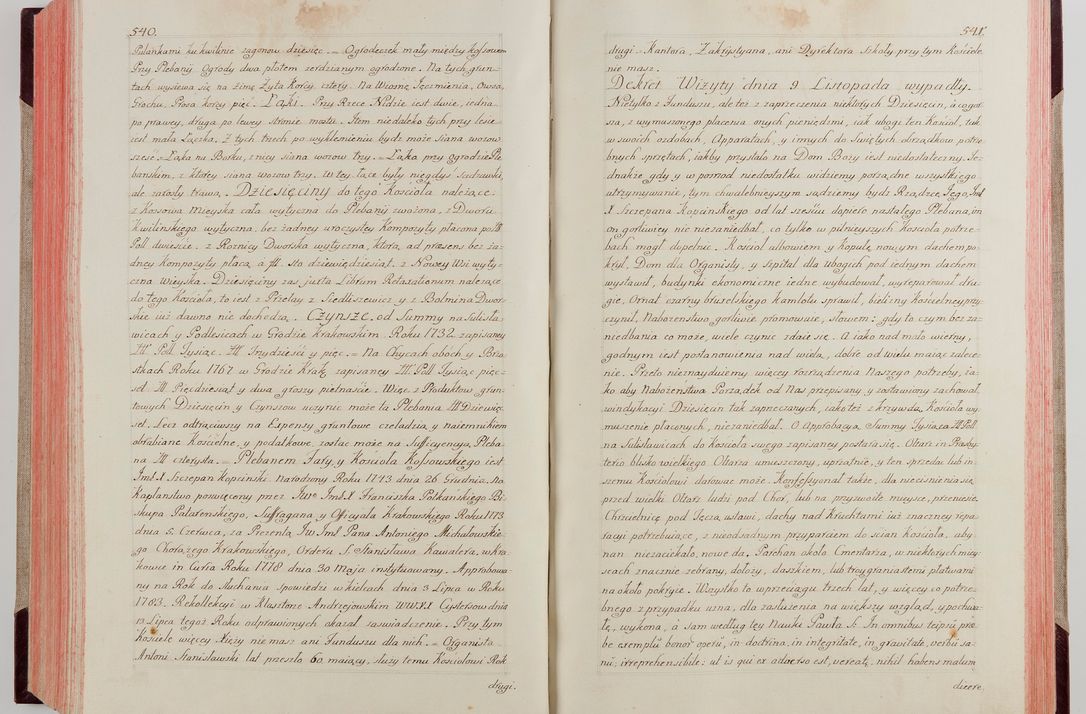 540.
Pulankami ku kwilinie zagonow dziesięc. = Ogrodeczek mały między kossowem
Przy Plebanij Ogrody dwa płotem zerdzianym ogrodzone. Na tych grun-
tach wysiewa się na zimę Zyta Korcy cztery. Na Wiosnę Jęczmienia, Owsa,
Grochu, Prosa korcy pięc. Łąki. Przy Rzece Nidzie iest dwie, iedna
po prawey, druga po lewey stronie mostu. Item niedaleko tych przy lesie
iest mała Łączka, Z tych trzech po wyklesnieniu bydź może siana wozow
szesć. = Łąka na Borku, z niey siana wozow trzy. = Łąka przy Ogrodzie Ple-
banskim, z ktorey siana wozow trzy. W tey Łące były niegdyś Sadzawki,
ale zarosły trawą. Dziesięciny do tego Kościoła należące:
z Kossowa Mieyska cała wytyczna do Plebanij zwożona, z Dworu
Kwilinskiego wytyczna, bez żadney uroczystey Kompozyty płacona po Zł
Poll. dwiescie. z Roznicy Dworska wytyczna, ktora, ad præsens bez ża-
dney Kompozyty płacą a Zł. sto dziewiędziesiąt. z Nowey Wsi wyty-
czna Wieyska. Dziesięciny zas juxta Librum Retaxationum należące
do tego Kościoła, to iest z Przełay z Siedliszewicz y z Bolmina Dwor-
skie już dawno nie dochodzą. Czynsze, od Summy na Sulisła-
wicach y Podlesicach w Grodzie Krakowskim Roku 1732 zapisaney
Zł. Poll. Tysiąc. Zł. Trzydzieści y pięc. = Na Chycach oboch y Brza-
stkach Roku 1767 w Grodzie Krak: zapisaney Zł. Poll. Tysiąc pięc-
set Zł. Pięcdziesiąt y dwa, groszy piętnaście. Więc z Produktow grun-
towych Dziesięcin y Czynszow uczynic może ta Plebania Zł. Dziewięc-
set. Lecz odtrąciwszy na Expensy gruntowe czeladzią y naiemnikiem
obrabiane Kościelne, y podatkowe, zostac może na Sufficyencyą Pleba-
na Zł. czterysta. = Plebanem Fary, y Kościoła Kossowskiego iest
Jmć X. Szczepan Kopcinski. Narodzony Roku 1743 dnia 26 Grudnia. Na
Kapłanstwo poswięcony przez Jwo Jmć X. Franciszka Potkanskiego Bi-
skupa Patarenskiego, Suffragana y Officyała Krakowskiego Roku 1773
dnia 5. Czerwca, za Prezentą Jw. Jmć Pana Antoniego Michałowskie-
go Chorążego Krakowskiego, Orderu S. Stanisława Kawalera, w Kra-
kowie in Curia Roku 1778 dnia 30 Maja instytuowany. Approbowa-
ny na Rok do słuchania spowiedzi w Kielcach dnia 3 Lipca w Roku
1783. Rekollekcyi w Klasztorze Andrzejowskim WW.XX. Cystersow dnia
13 Lipca tegoż Roku odprawionych okazał zaswiadczenie. Przy tym
Kościele więcey Xięży nie masz ani Funduszu dla nich. = Organista
Antoni Stanisławski lat przeszło 60 maiący, służy temu Kościołowi Rok
drugi.
541.
drugi. = Kantora, Zakrystyana, ani Dyrektora Szkoły przy tym Kościele
nie masz.
Dekret Wizyty dnia 9 Listopada wypadły.
Nietylko z Funduszu, ale też z zaprzeczenia niektorych Dziesięcin, a co gor-
sza, z wymuszonego płacenia onych pieniędzmi, iak ubogi ten Kościoł, tak
w swoich ozdobach, Apparatach, y innych do Swiętych obrządkow potrze-
bnych sprzętach, iakby przystało na Dom Boży iest niedostateczny. Je-
dnakże gdy y w posrod niedostatku widziemy porządne wszystkiego
utrzymywanie, tym chwalebnieyszym sądziemy bydź Rządzcę Jego, Jmć
X. Szczepana Kopcinskiego od lat szesciu dopiero nastałego Plebana, im
on gorliwiey nie niezaniedbał, co tylko w pilnieyszych Kościoła potrze-
bach mogł dopełnic. Kościoł albowiem y Kopułę nowym dachem po-
krył, Dom dla Organisty, y Szpital dla ubogich pod iednym dachem
wystawił, budynki ekonomiczne iedne wybudował, wyreperował dru-
gie, Ornat czarny bruselskiego kamlotu sprawił, bielizny Kościelney przy-
czynił. Nabożenstwo gorliwie promowuie, słowem: gdy to czym bez za-
niedbania co może, wiele czynic zdaie się. A iako nad mało wierny,
godnym iest postanowienia nad wielą, dobre od wielu maiąc zalece-
nie. Przeto nieznayduiemy więcey rozrządzenia Naszego potrzeby, ia-
ko aby Nabożenstwa Porządek od Nas przepisany y zostawiony zachował,
windykacyi Dziesięcin tak zaprzeczanych, iako też z krzywdą Kościoła wy-
muszenie płaconych, niezaniedbał. O Approbacyą Summy Tysiąca Zł. Poll.
na Sulisławicach do Kościoła swego zapisaney postara się. Ołtarz in Presby-
terio blisko wielkiego Ołtarza umieszczony, uprzątnie, y ten sprzedac lub in-
szemu Kościołowi darowac może. Konfessyonał także, dla nieciśnienia się
przed wielki Ołtarz ludzi pod Chor, lub na przyzwoite mieysce, przeniesie.
Chrzcielnicę pod Tęczą ustawi, dachy nad Kruchtami iuż znaczney repa-
racyi potrzebuiące, z nieodsadnym przyparciem do scian Kościoła, aby
nan niezaciekało, nowe da. Parchan około Cmentarza, w niektorych miey-
scach znacznie zebrany, dołoży, daszkiem, lub troygraniastemi płatwami
na około pokryie. Wszystko to w przeciągu trzech lat, y więcey co potrze-
bnego z przypadku uzna, dla zasłużenia na większy wzgląd, y pochwa-
łę, wykona, a sam według tey Nauki Pawła S. In omnibus teipsū præ-
be exemplū bonorū operū, in doctrina, in integritate, in gravitate, verbū sa-
nū, irreprehensibile: ut is qui ex adverso est, vereatę, nihil habens malum
dicere.